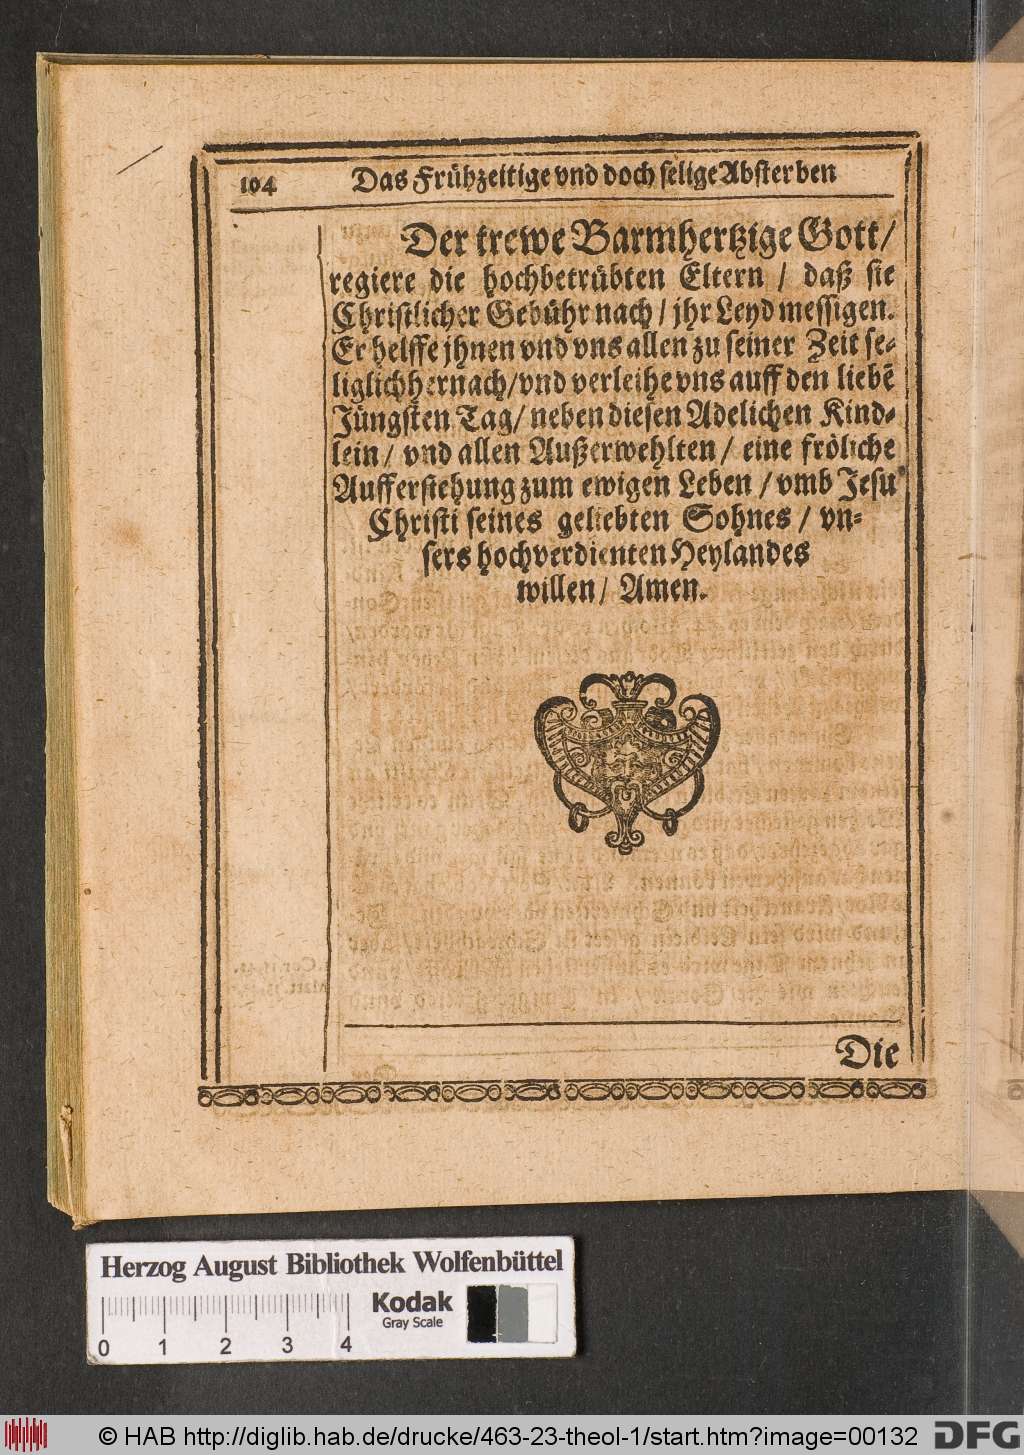 104 Das Frühzeitige vnd doch selige Absterben
Der trewe Barmhertzige Gott/
regiere die hochbetrübten Eltern / daß sie
Christlicher Gebühr nach / jhr Leyd messigen.
Er helffe jhnen vnd vns allen zu seiner Zeit se-
liglich hernach/vnd verleihe vns auff den liebē
Jüngsten Tag/ neben diesen Adelichen Kind-
lein/ vnd allen Außerwehlten/ eine fröliche
Aufferstehung zum ewigen Leben / vmb Jesu
Christi seines geliebten Sohnes / vn-
sers hochverdienten Heylandes
willen/ Amen.
Die
Herzog August Bibliothek Wolfenbüttel
Kodak
Gray Scale
0 1 2 3 4
© HAB http://diglib.hab.de/drucke/463-23-theol-1/start.htm?image=00132
DFG